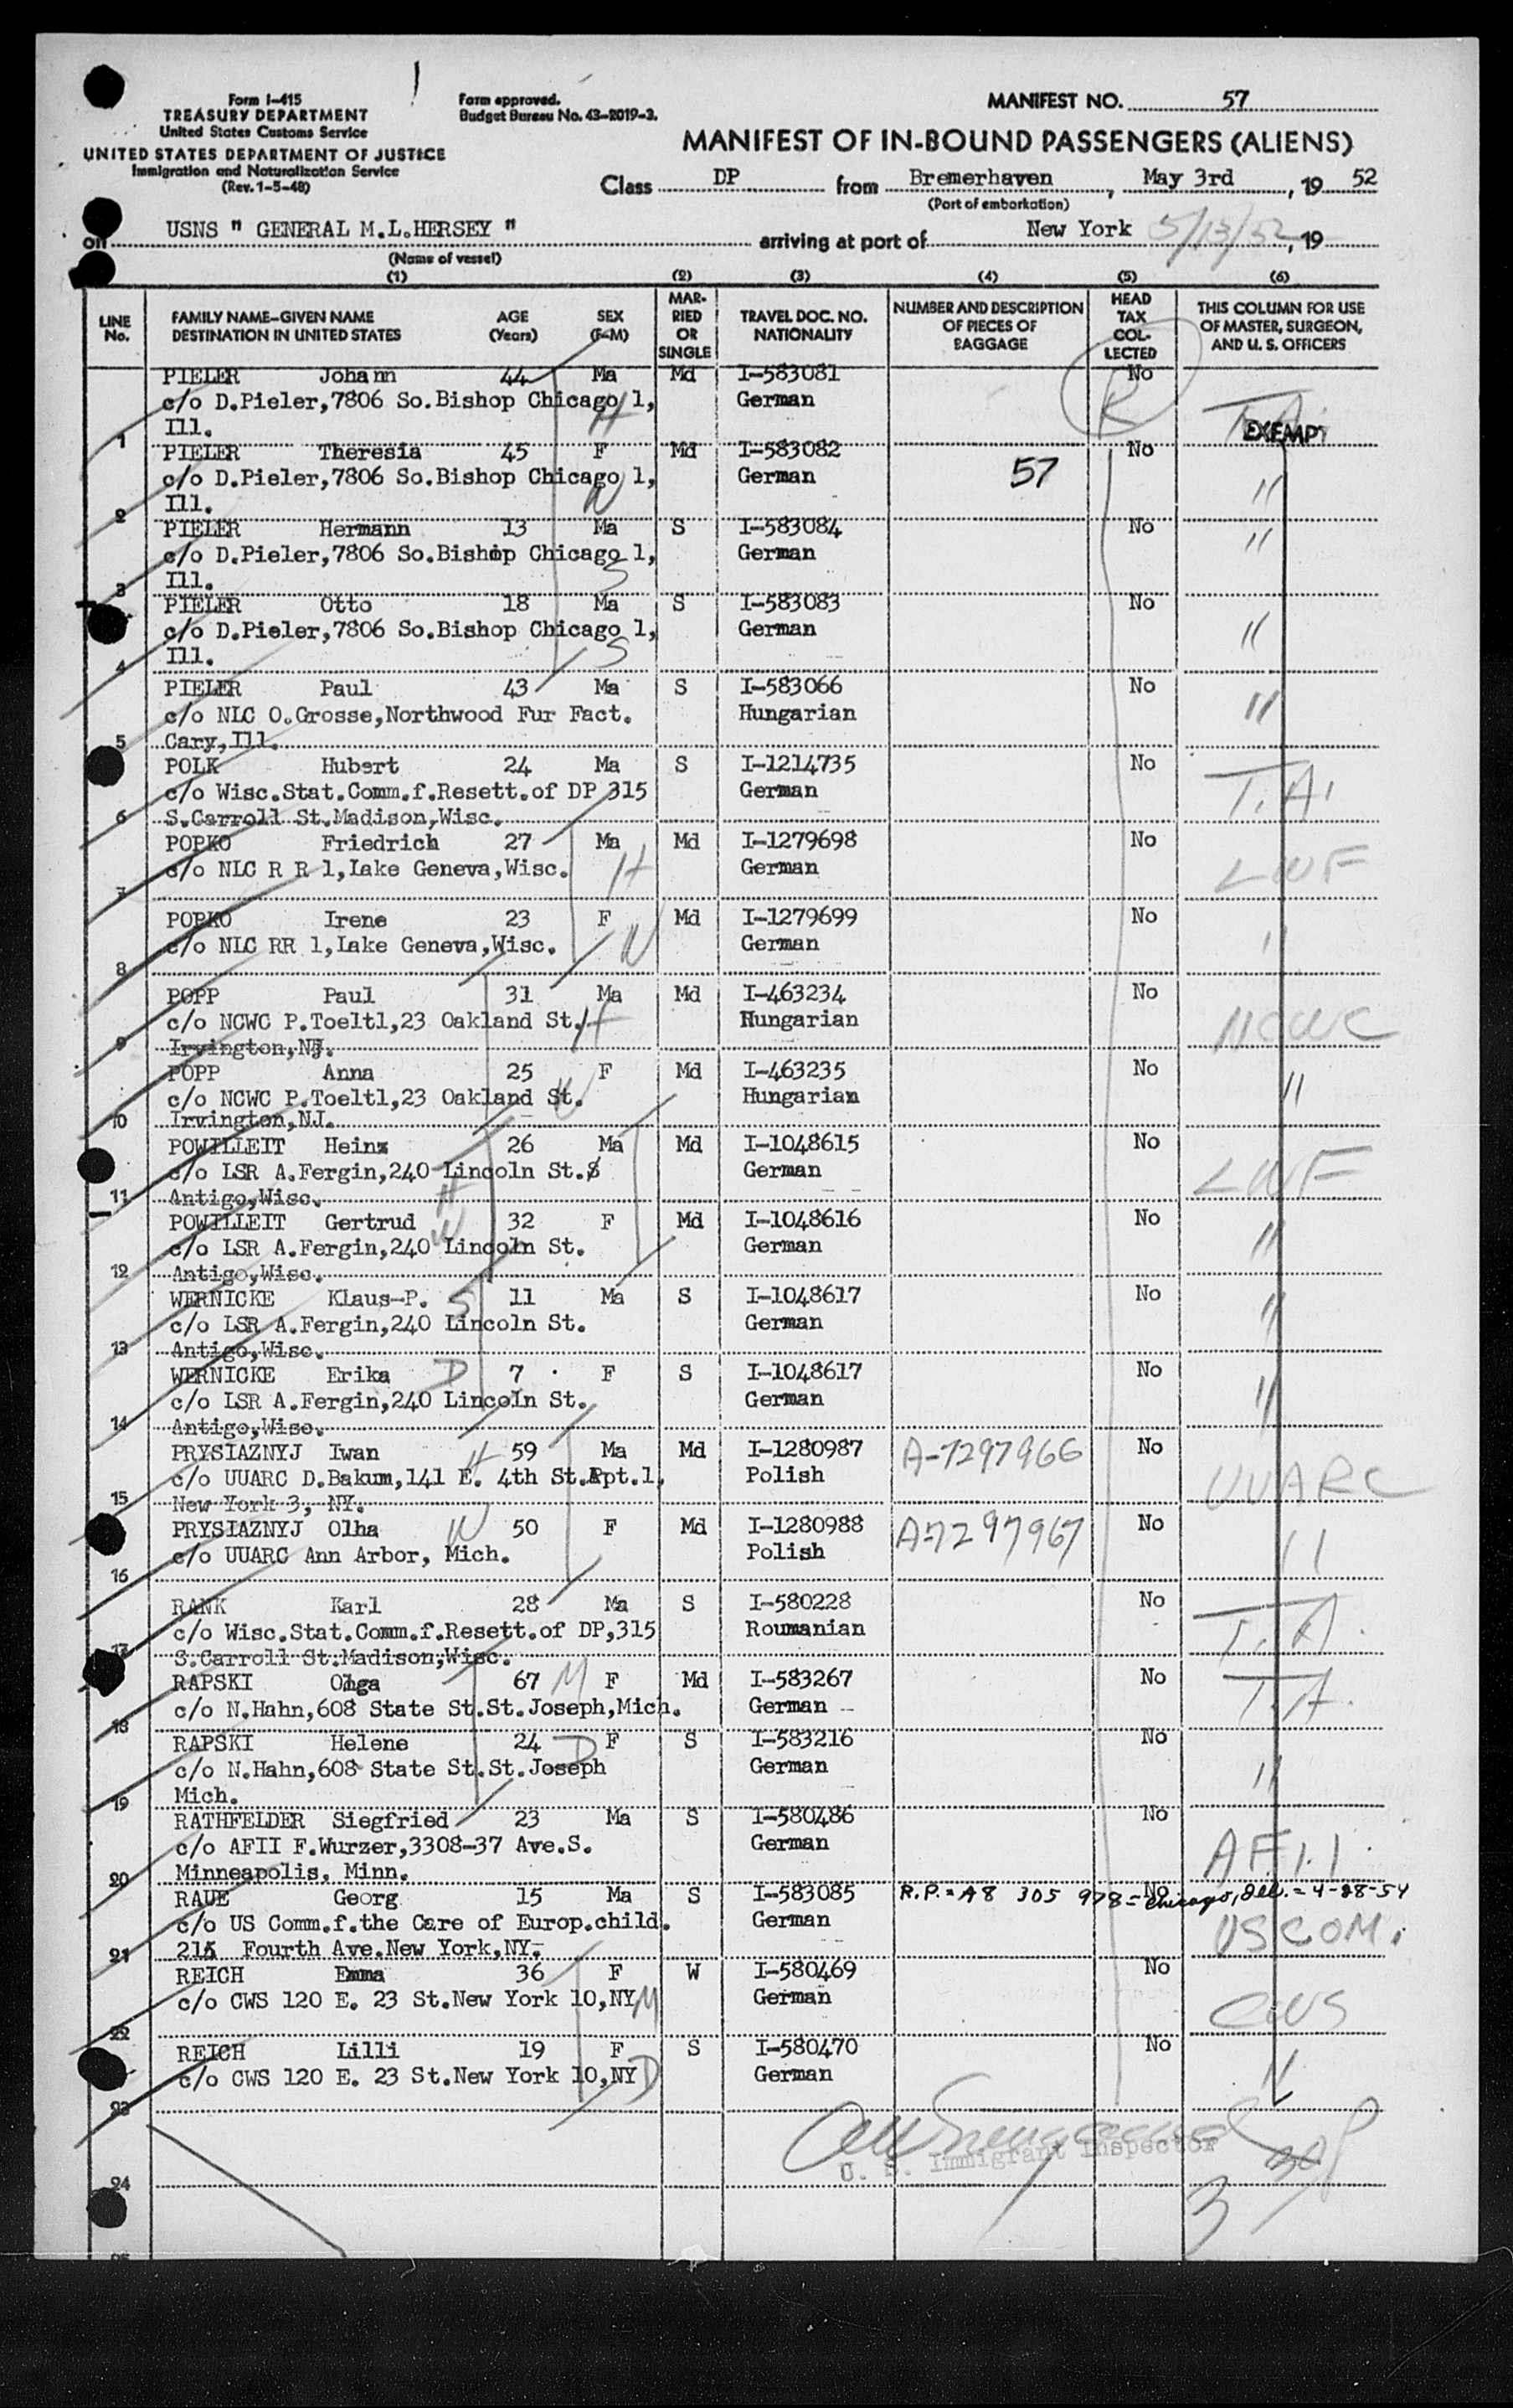 Form I-415
TREASURY DEPARTMENT
United States Customs Service
UNITED STATES DEPARTMENT OF JUSTICE
Immigration and Naturalization Service
(Rev. 1-5-48)
Form approved.
Budget Bureau No. 43-R019-3.
MANIFEST NO. 57
MANIFEST OF IN-BOUND PASSENGERS (ALIENS)
Class DP from Bremerhaven, May 3rd, 19 52
(Port of embarkation)
on USNS " GENERAL M.L.HERSEY " arriving at port of New York 5/13/52, 19
(Name of vessel)
(1) (2) (3) (4) (5) (6)
LINE No.
FAMILY NAME—GIVEN NAME
DESTINATION IN UNITED STATES
AGE (Years)
SEX (F-M)
MARRIED OR SINGLE
TRAVEL DOC. NO.
NATIONALITY
NUMBER AND DESCRIPTION OF PIECES OF BAGGAGE
HEAD TAX COLLECTED
THIS COLUMN FOR USE OF MASTER, SURGEON, AND U. S. OFFICERS
PIELER Johann 44 Ma Md I-583081 No
c/o D.Pieler,7806 So.Bishop Chicago 1, German R T.A.
1 Ill. H EXEMPT
PIELER Theresia 45 F Md I-583082 No
c/o D.Pieler,7806 So.Bishop Chicago 1, German 57 "
2 Ill. W
PIELER Hermann 13 Ma S I-583084 No
c/o D.Pieler,7806 So.Bishop Chicago 1, German "
3 Ill. S
PIELER Otto 18 Ma S I-583083 No
c/o D.Pieler,7806 So.Bishop Chicago 1, German "
4 Ill. S
PIELER Paul 43 Ma S I-583066 No
c/o NLC O.Grosse,Northwood Fur Fact. Hungarian "
5 Cary,Ill.
POLK Hubert 24 Ma S I-1214735 No
c/o Wisc.Stat.Comm.f.Resett.of DP 315 German T.A.
6 S.Carroll St.Madison,Wisc.
POPKO Friedrich 27 Ma Md I-1279698 No
c/o NLC R R 1,Lake Geneva,Wisc. H German LWF
7
POPKO Irene 23 F Md I-1279699 No
c/o NLC RR 1,Lake Geneva,Wisc. W German "
8
POPP Paul 31 Ma Md I-463234 No
c/o NCWC P.Toeltl,23 Oakland St. H Hungarian NCWC
9 Irvington,NJ.
POPP Anna 25 F Md I-463235 No
c/o NCWC P.Toeltl,23 Oakland St. W Hungarian "
10 Irvington,NJ.
POWILLEIT Heinz 26 Ma Md I-1048615 No
c/o LSR A.Fergin,240 Lincoln St. German LWF
11 Antigo,Wisc. H
POWILLEIT Gertrud W 32 F Md I-1048616 No
c/o LSR A.Fergin,240 Lincoln St. German "
12 Antigo,Wisc.
WERNICKE Klaus-P. S 11 Ma S I-1048617 No
c/o LSR A.Fergin,240 Lincoln St. German "
13 Antigo,Wisc.
WERNICKE Erika D 7 F S I-1048617 No
c/o LSR A.Fergin,240 Lincoln St. German "
14 Antigo,Wisc.
PRYSIAZNYJ Iwan H 59 Ma Md I-1280987 A-7297966 No
c/o UUARC D.Bakum,141 E. 4th St.Apt.1, Polish UUARC
15 New York 3, NY.
PRYSIAZNYJ Olha W 50 F Md I-1280988 A-7297967 No
c/o UUARC Ann Arbor, Mich. Polish "
16
RANK Karl 28 Ma S I-580228 No
c/o Wisc.Stat.Comm.f.Resett.of DP,315 Roumanian T.A.
17 S.Carroll St.Madison,Wisc.
RAPSKI Olga 67 M F Md I-583267 No
c/o N.Hahn,608 State St.St.Joseph,Mich. German T.A.
18
RAPSKI Helene 24 D F S I-583216 No
c/o N.Hahn,608 State St.St.Joseph German "
19 Mich.
RATHFELDER Siegfried 23 Ma S I-580486 No
c/o AFII F.Wurzer,3308-37 Ave.S. German AFII.
20 Minneapolis, Minn.
RAUE Georg 15 Ma S I-583085 R.P.=A8 305 978= Chicago, Ill.= 4-28-54 No
c/o US Comm.f.the Care of Europ.child. German USCOM.
21 215 Fourth Ave.New York,NY.
REICH Emma 36 F W I-580469 No
c/o CWS 120 E. 23 St.New York 10,NY M German CWS
22
REICH Lilli 19 F S I-580470 No
c/o CWS 120 E. 23 St.New York 10,NY D German "
23
U. S. Immigrant Inspector
24
3